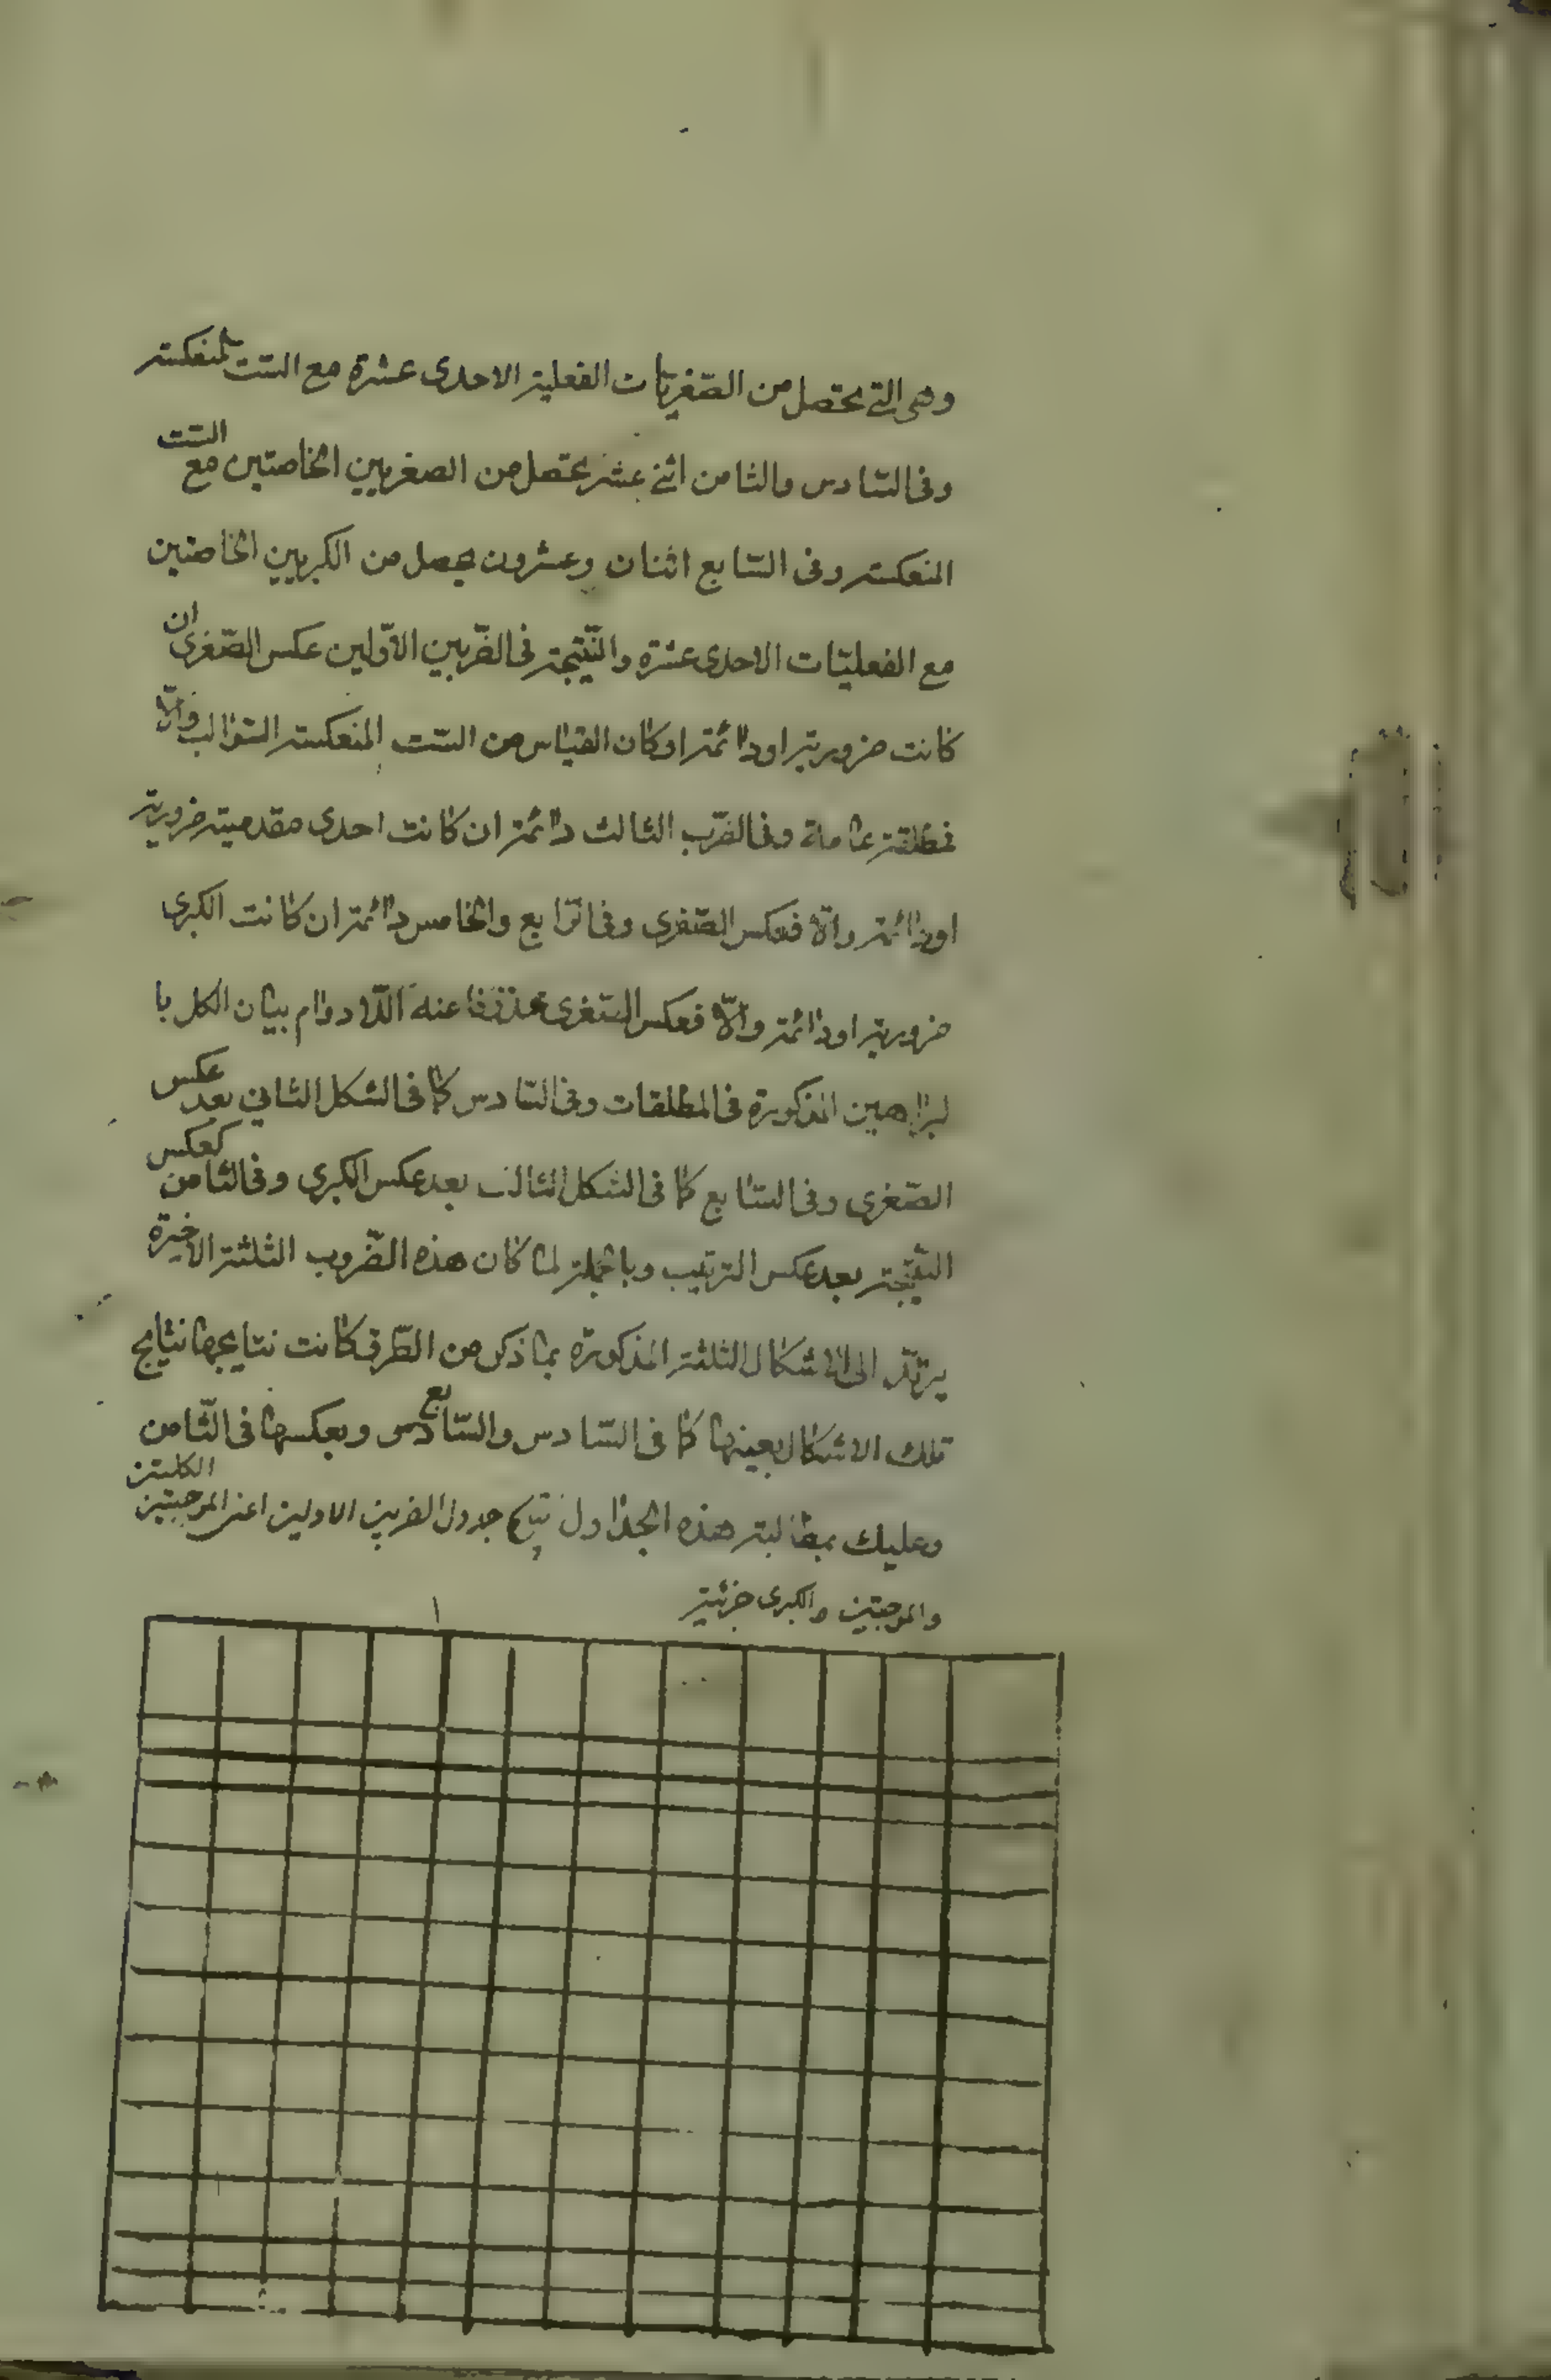 وهى التى يحصل من الصّغريات الفعلية الاحدى عشرة مع الستّ المنعكسة
وفى السّادس والثامن اثنى عشر يحصل من الصغريين الخاصتين مع الستّ
المنعكسة وفى السّابع اثنان وعشرون يحصل من الكبريين الخاصتين
مع الفعليّات الاحدى عشرة والنّتيجة فى الضّربين الاوّلين عكس الصّغرى ان
كانت ضرورية او دائمة او كان القياس من الستّ المنعكسة السّوالب والاّ
فمطلقة عامة وفى الضّرب الثالث دائمة ان كانت احدى مقدميته ضرورية
او دائمة والاّ فعكس الصّغرى وفى الرّابع والخامس دائمة ان كانت الكبرى
ضرورية او دائمة والاّ فعكس الصّغرى محذوفا عنه اللّادوام بيان الكل با
لبراهين المذكورة فى المطلقات وفى السّادس كما فى الشكل الثانى بعد عكس
الصّغرى وفى السّابع كما فى الشكل الثالث بعد عكس الكبرى وفى الثامن كعكس
النّتيجة بعد عكس الترتيب وبالجملة لما كان هذه الضّروب الثلثة الاخيرة
يرتدّ الى الاشكال الثلثة المذكورة بما ذكر من الطّرق كانت نتايجها نتايج
تلك الاشكال بعينها كما فى السّادس والسّادس بع وبعكسها فى الثّامن
وعليك بمطالبة هذه الجداول جدول الضربين الاولين اعنى الموجبتين الكليتين
والموجبتين والكبرى جزئية